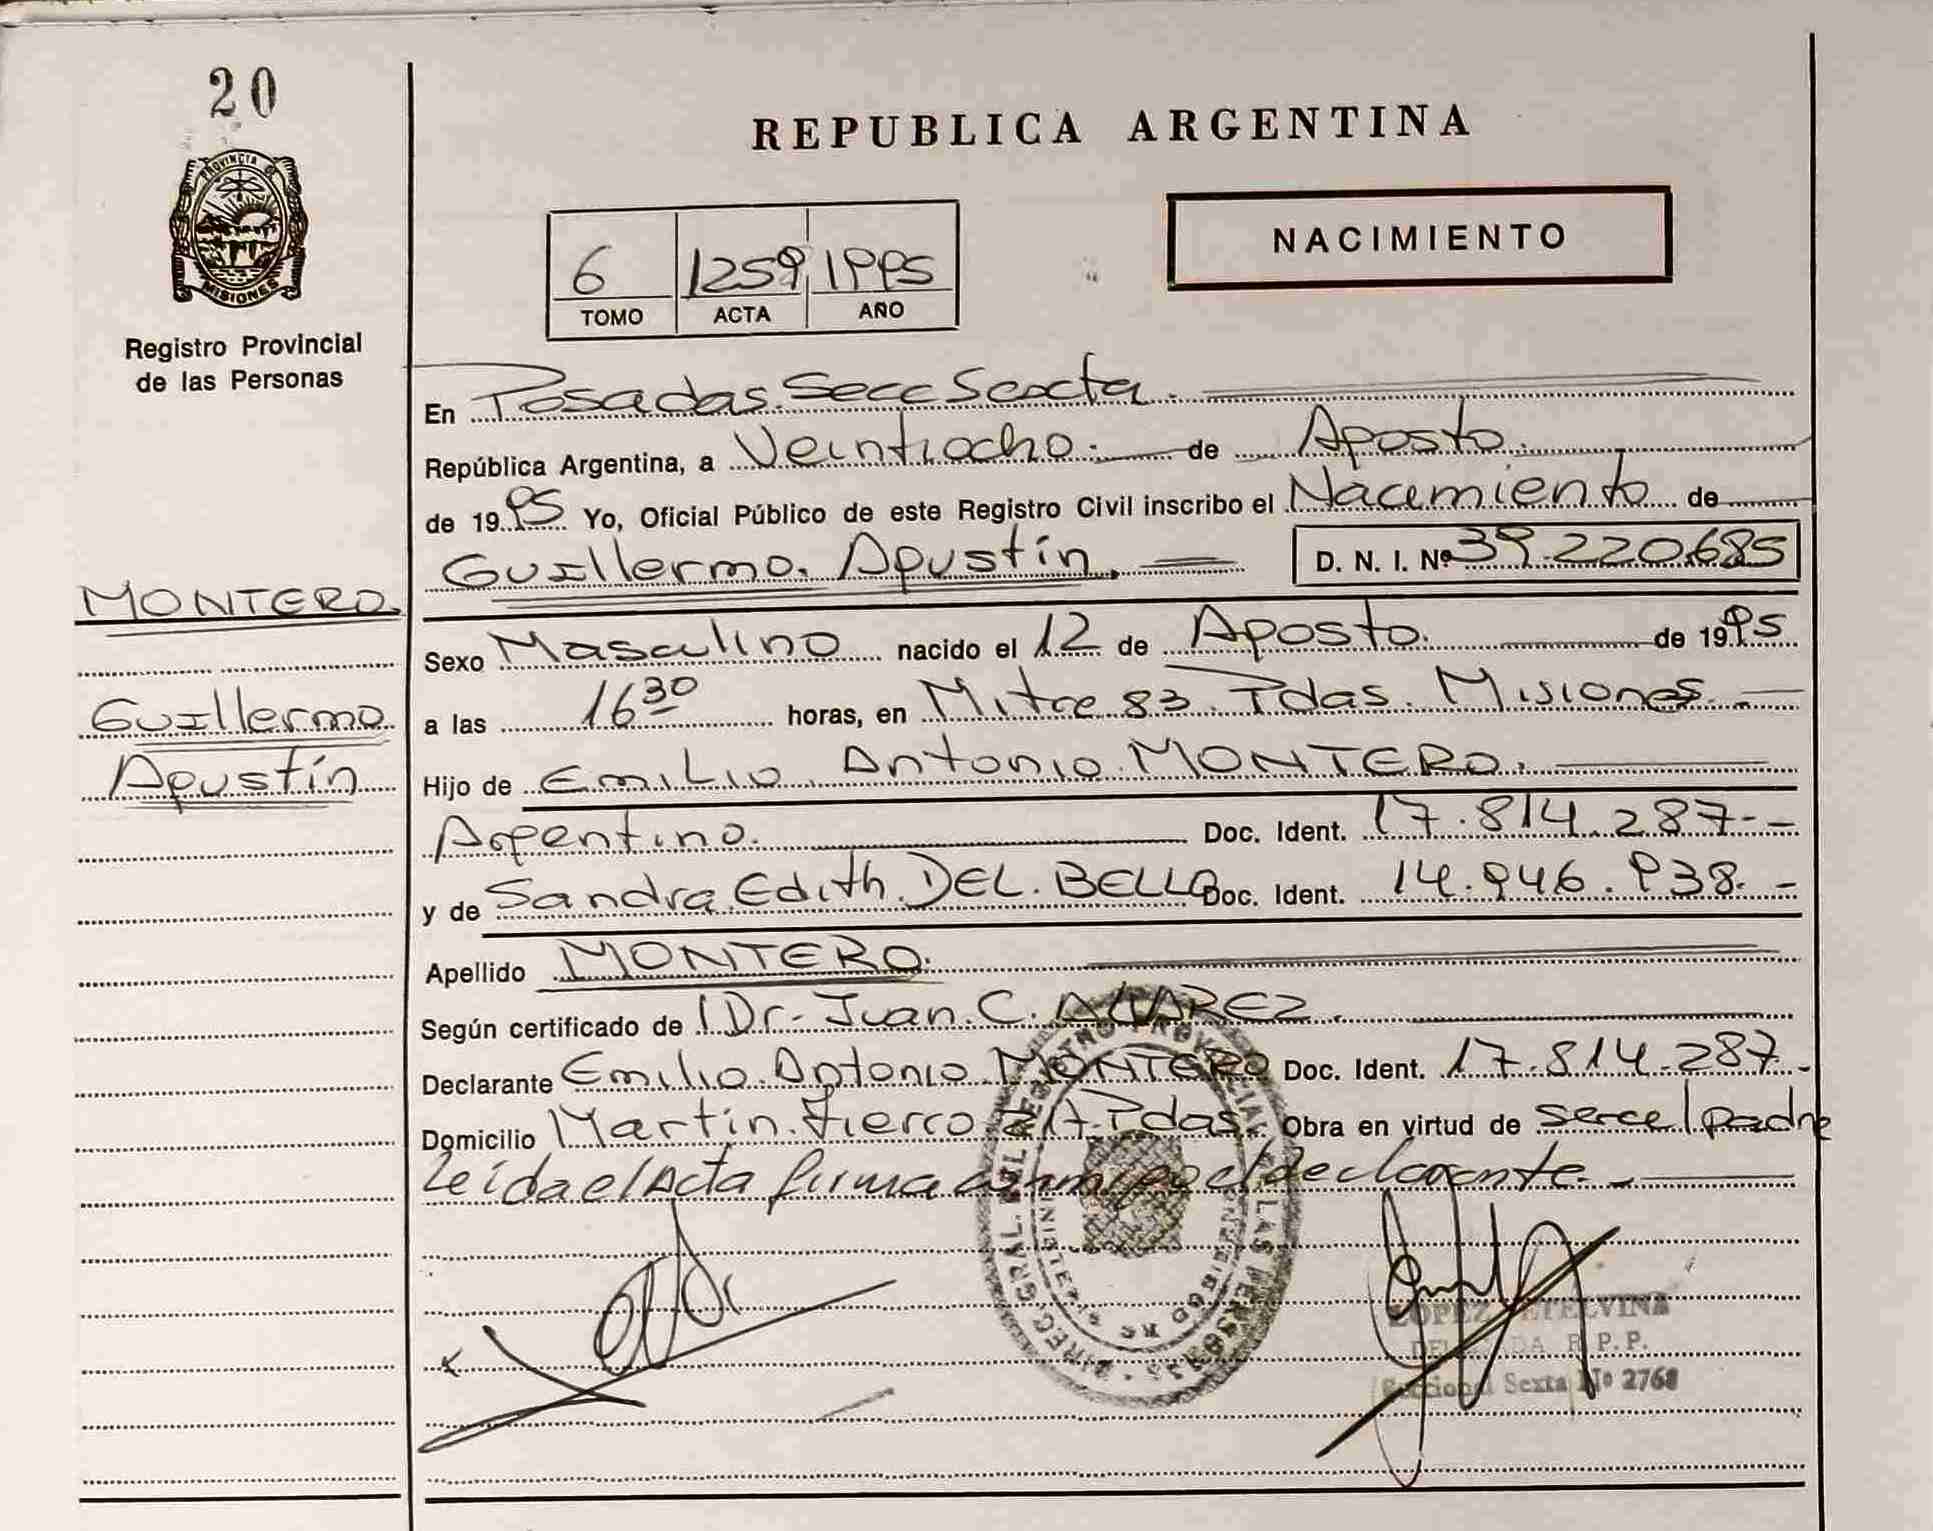 20
PROVINCIA DE
MISIONES
Registro Provincial
de las Personas
MONTERO
Guillermo
Agustín
REPUBLICA ARGENTINA
NACIMIENTO
6 1259 1995
TOMO ACTA AÑO
En Posadas. Secc Sexta.
República Argentina, a Veintiocho. de Agosto.
de 1995 Yo, Oficial Público de este Registro Civil inscribo el Nacimiento de
Guillermo. Agustín. D. N. I. Nº 39.220.685
Sexo Masculino nacido el 12 de Agosto. de 1995
a las 16 30 horas, en Mitre 83. Pdas. Misiones.
Hijo de Emilio. Antonio. MONTERO.
Argentino. Doc. Ident. 17.814.287.-
y de Sandra. Edith. DEL. BELLO Doc. Ident. 14.946.938.-
Apellido MONTERO.
Según certificado de Dr. Juan. C. ALVAREZ.
Declarante Emilio. Antonio. MONTERO Doc. Ident. 17.814.287.-
Domicilio Martín. Fierro Pdas. Obra en virtud de ser el padre
Leida el Acta firma conmigo el declarante.-
DIREC. GRAL. DEL REGISTRO PROVINCIAL DE LAS PERSONAS
MINISTERIO DE GOBIERNO
LOPEZ ETELVINA
DELEGADA R. P. P.
Seccional Sexta Nº 2768